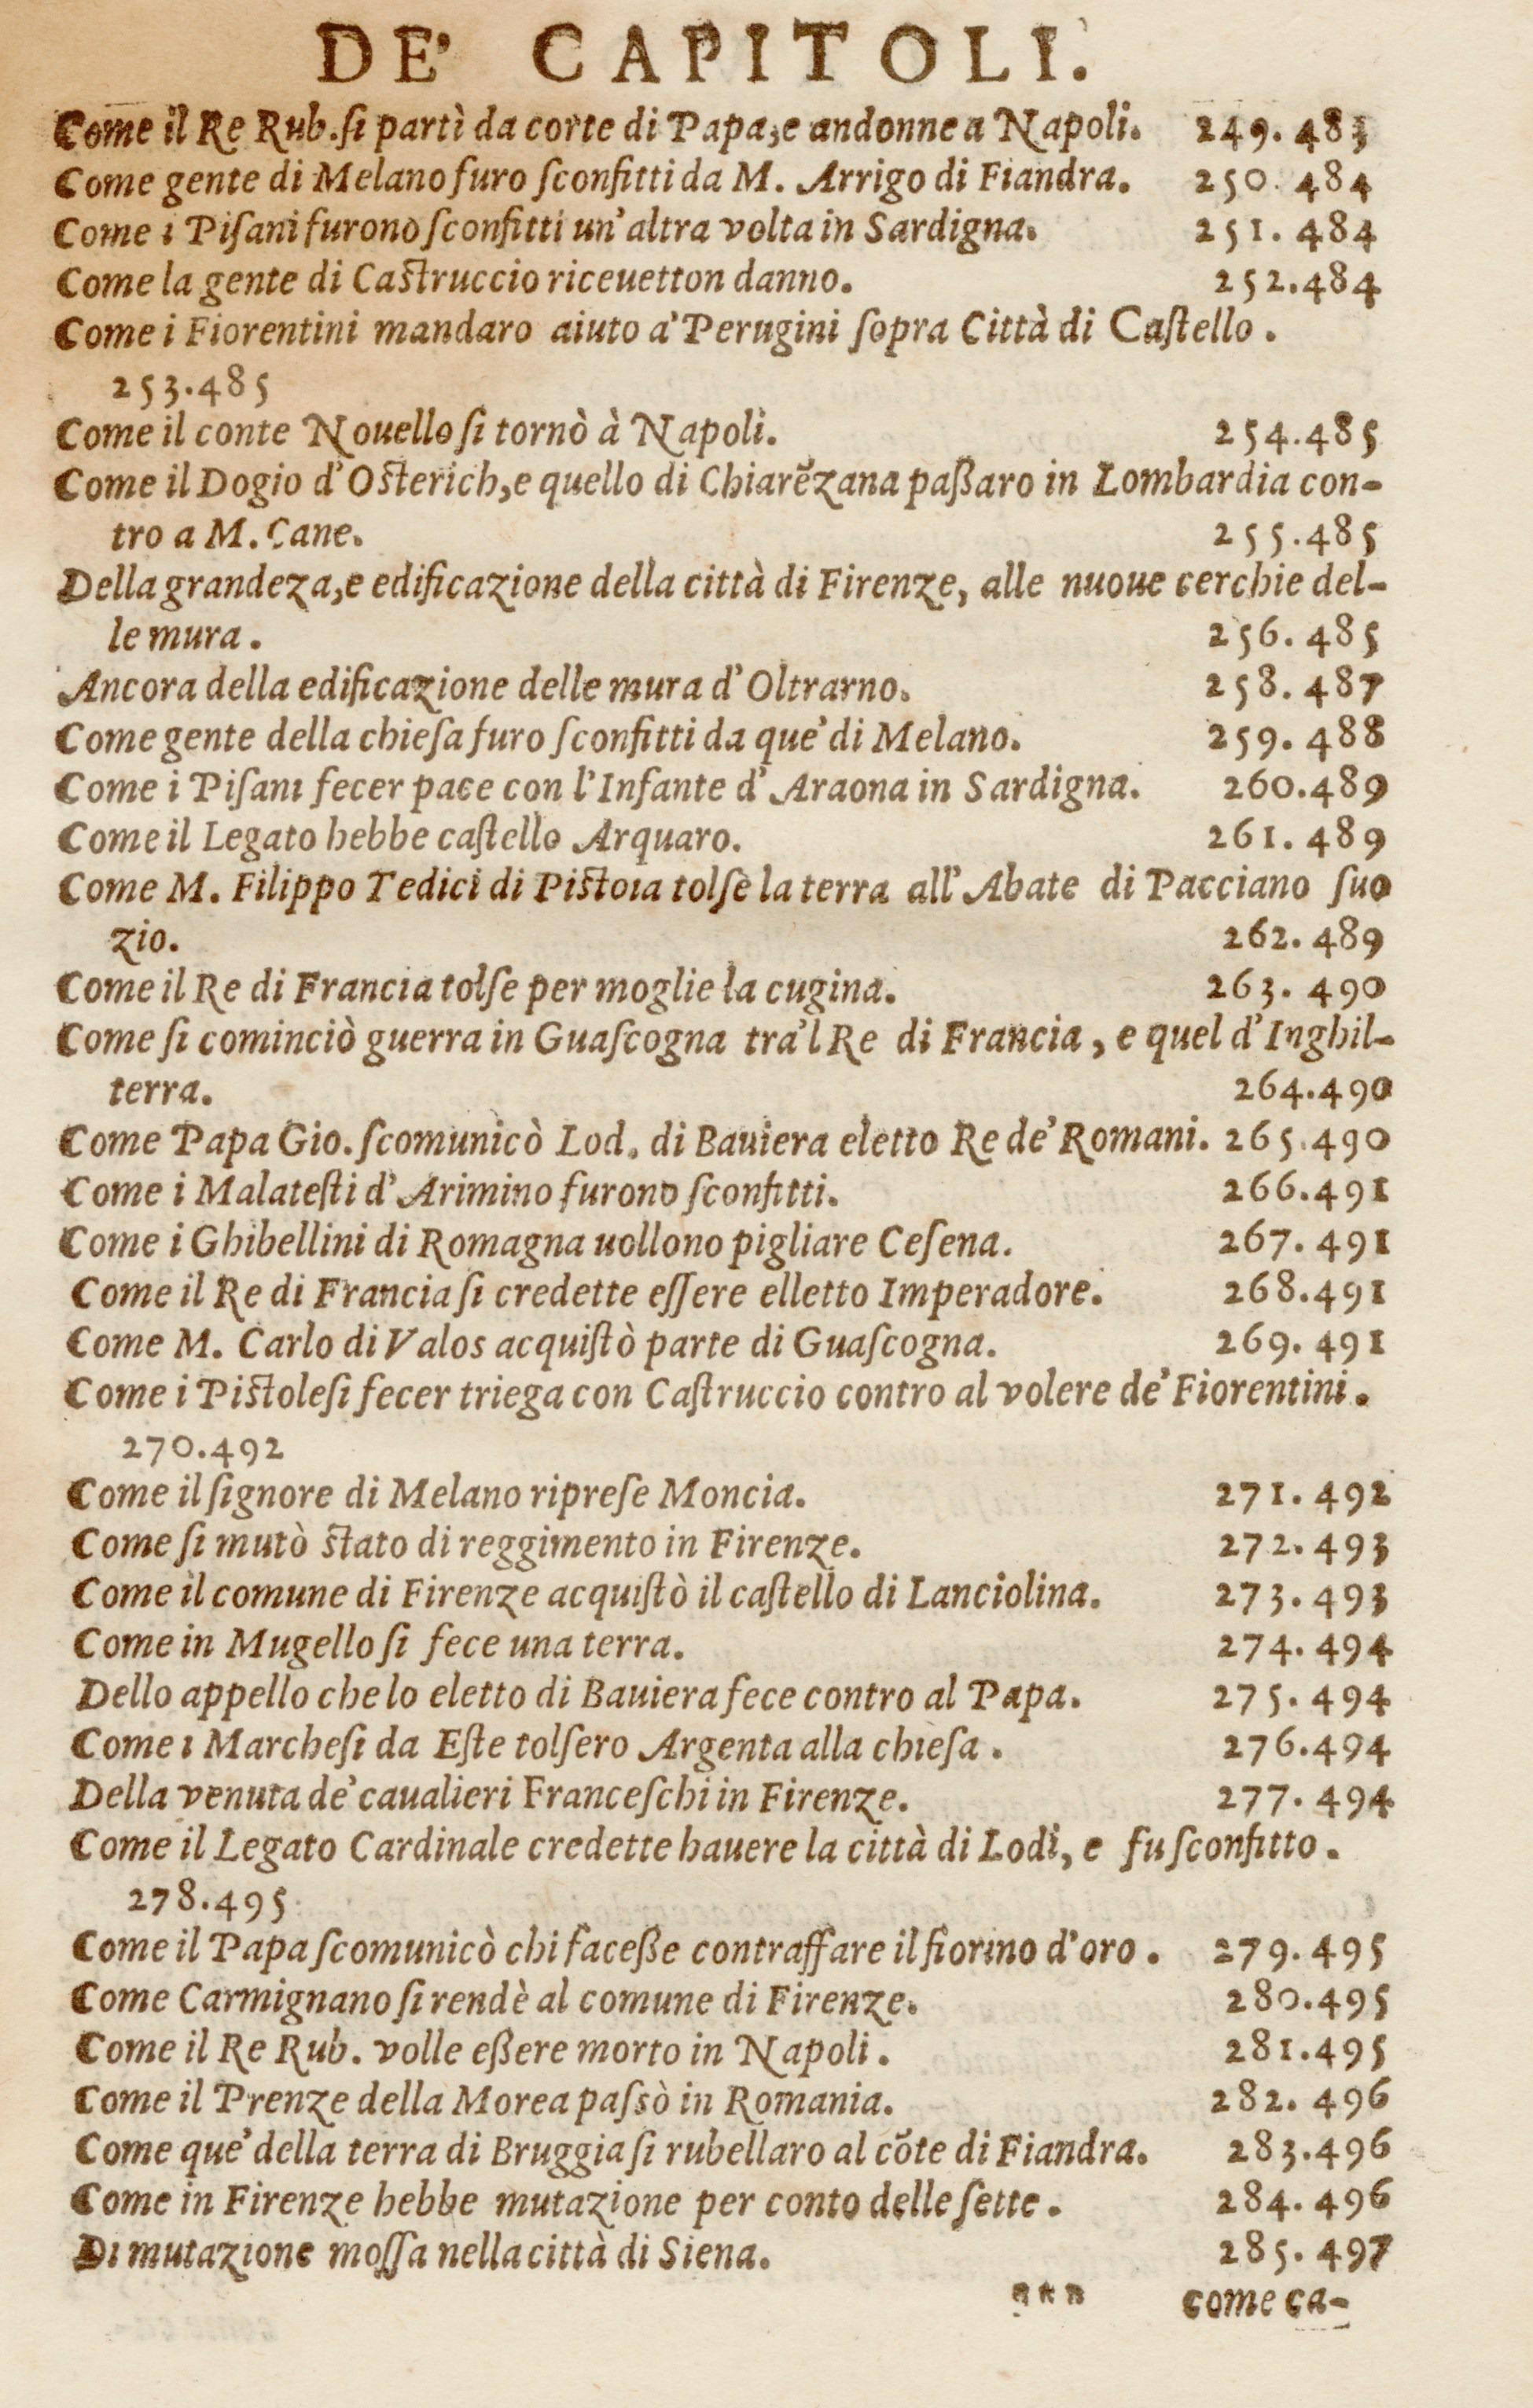 DE' CAPITOLI.
Come il Re Rub. ſi partì da corte di Papa, e andonne a Napoli. 249. 483
Come gente di Melano furo ſconfitti da M. Arrigo di Fiandra. 250. 484
Come i Piſani furono ſconfitti un'altra volta in Sardigna. 251. 484
Come la gente di Caſtruccio riceuetton danno. 252.484
Come i Fiorentini mandaro aiuto a' Perugini ſopra Città di Caſtello .
253.485
Come il conte Nouello ſi tornò à Napoli. 254.485
Come il Dogio d'Oſterich, e quello di Chiarẽzana paßaro in Lombardia con-
tro a M. Cane. 255.485
Della grandeza, e edificazione della città di Firenze, alle nuoue cerchie del-
le mura . 256. 485
Ancora della edificazione delle mura d'Oltrarno. 258. 487
Come gente della chieſa furo ſconfitti da que' di Melano. 259. 488
Come i Piſani fecer pace con l'Infante d'Araona in Sardigna. 260.489
Come il Legato hebbe caſtello Arquaro. 261. 489
Come M. Filippo Tedici di Piſtoia tolſe la terra all'Abate di Pacciano ſuo
zio. 262. 489
Come il Re di Francia tolſe per moglie la cugina. 263. 490
Come ſi cominciò guerra in Guaſcogna tra'l Re di Francia , e quel d'Inghil-
terra. 264.490
Come Papa Gio. ſcomunicò Lod. di Bauiera eletto Re de' Romani. 265.490
Come i Malateſti d'Arimino furono ſconfitti. 266.491
Come i Ghibellini di Romagna uollono pigliare Ceſena. 267. 491
Come il Re di Francia ſi credette eſſere elletto Imperadore. 268.491
Come M. Carlo di Valos acquiſtò parte di Guaſcogna. 269. 491
Come i Piſtoleſi fecer triega con Caſtruccio contro al volere de' Fiorentini .
270.492
Come il ſignore di Melano ripreſe Moncia. 271. 492
Come ſi mutò ſtato di reggimento in Firenze. 272. 493
Come il comune di Firenze acquiſtò il caſtello di Lanciolina. 273. 493
Come in Mugello ſi fece una terra. 274. 494
Dello appello che lo eletto di Bauiera fece contro al Papa. 275. 494
Come i Marcheſi da Eſte tolſero Argenta alla chieſa . 276.494
Della venuta de' caualieri Franceſchi in Firenze. 277. 494
Come il Legato Cardinale credette hauere la città di Lodi, e fu ſconfitto .
278.495
Come il Papa ſcomunicò chi faceße contraffare il fiorino d'oro . 279. 495
Come Carmignano ſi rendè al comune di Firenze. 280.495
Come il Re Rub. volle eßere morto in Napoli . 281.495
Come il Prenze della Morea paſsò in Romania. 282. 496
Come que' della terra di Bruggia ſi rubellaro al cõte di Fiandra. 283.496
Come in Firenze hebbe mutazione per conto delle ſette . 284. 496
Di mutazione moſſa nella città di Siena. 285. 497
come ca-